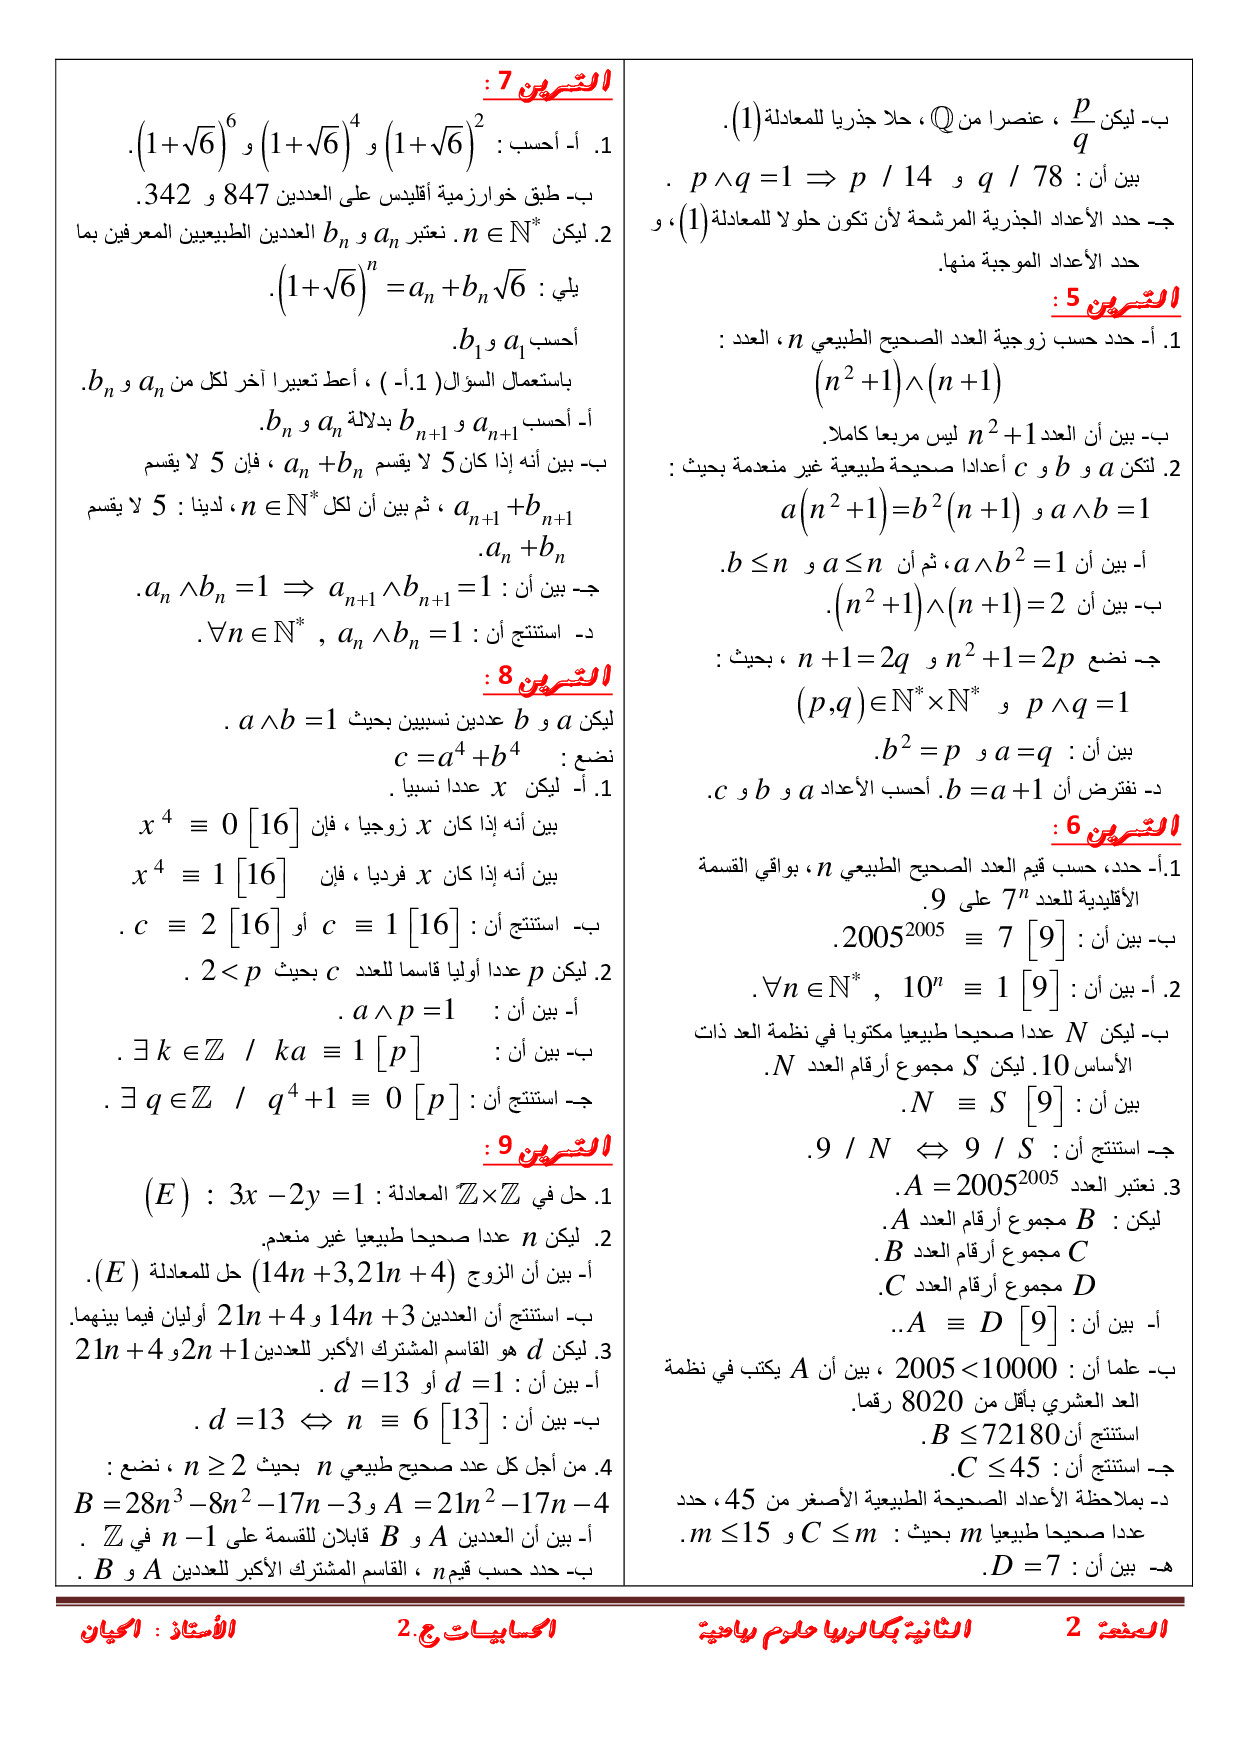 ب- ليكن p/q ، عنصرا من ℚ ، حلا جذريا للمعادلة (1).
بين أن : p∧q =1 ⇒ p / 14 و q / 78 .
جـ- حدد الأعداد الجذرية المرشحة لأن تكون حلولا للمعادلة (1) ، و
حدد الأعداد الموجبة منها.
التمرين 5 :
1. أ- حدد حسب زوجية العدد الصحيح الطبيعي n ، العدد :
(n²+1)∧(n+1)
ب- بين أن العدد n²+1 ليس مربعا كاملا.
2. لتكن a و b و c أعدادا صحيحة طبيعية غير منعدمة بحيث :
a∧b =1 و a(n²+1)=b²(n+1)
أ- بين أن a∧b²=1 ، ثم أن a≤n و b≤n.
ب- بين أن (n²+1)∧(n+1)=2.
جـ- نضع n²+1=2p و n+1=2q ، بحيث :
p∧q =1 و (p,q)∈ℕ*×ℕ*
بين أن : a=q و b²=p.
د- نفترض أن b=a+1. أحسب الأعداد a و b و c.
التمرين 6 :
1.أ- حدد، حسب قيم العدد الصحيح الطبيعي n ، بواقي القسمة
الأقليدية للعدد 7ⁿ على 9.
ب- بين أن : 2005²⁰⁰⁵ ≡ 7 [9].
2. أ- بين أن : ∀n∈ℕ* , 10ⁿ ≡ 1 [9].
ب- ليكن N عددا صحيحا طبيعيا مكتوبا في نظمة العد ذات
الأساس 10. ليكن S مجموع أرقام العدد N.
بين أن : N ≡ S [9].
جـ- استنتج أن : 9 / N ⇔ 9 / S.
3. نعتبر العدد A=2005²⁰⁰⁵.
ليكن : B مجموع أرقام العدد A.
C مجموع أرقام العدد B.
D مجموع أرقام العدد C.
أ- بين أن : A ≡ D [9]..
ب- علما أن : 2005<10000 ، بين أن A يكتب في نظمة
العد العشري بأقل من 8020 رقما.
استنتج أن B≤72180.
جـ- استنتج أن : C≤45.
د- بملاحظة الأعداد الصحيحة الطبيعية الأصغر من 45 ، حدد
عددا صحيحا طبيعيا m بحيث : C≤m و m≤15.
هـ- بين أن : D=7.
التمرين 7 :
1. أ- أحسب : (1+√6)² و (1+√6)⁴ و (1+√6)⁶.
ب- طبق خوارزمية أقليدس على العددين 847 و 342.
2. ليكن n∈ℕ*. نعتبر aₙ و bₙ العددين الطبيعيين المعرفين بما
يلي : (1+√6)ⁿ=aₙ+bₙ√6.
أحسب a₁ و b₁.
باستعمال السؤال( 1.أ- ) ، أعط تعبيرا آخر لكل من aₙ و bₙ.
أ- أحسب aₙ₊₁ و bₙ₊₁ بدلالة aₙ و bₙ.
ب- بين أنه إذا كان 5 لا يقسم aₙ+bₙ ، فإن 5 لا يقسم
aₙ₊₁+bₙ₊₁ ، ثم بين أن لكل n∈ℕ* ، لدينا : 5 لا يقسم
aₙ+bₙ.
جـ- بين أن : aₙ∧bₙ=1 ⇒ aₙ₊₁∧bₙ₊₁=1.
د- استنتج أن : ∀n∈ℕ* , aₙ∧bₙ=1.
التمرين 8 :
ليكن a و b عددين نسبيين بحيث a∧b=1 .
نضع : c=a⁴+b⁴
1. أ- ليكن x عددا نسبيا .
بين أنه إذا كان x زوجيا ، فإن x⁴ ≡ 0 [16]
بين أنه إذا كان x فرديا ، فإن x⁴ ≡ 1 [16]
ب- استنتج أن : c ≡ 1 [16] أو c ≡ 2 [16] .
2. ليكن p عددا أوليا قاسما للعدد c بحيث 2<p .
أ- بين أن : a∧p=1 .
ب- بين أن : ∃k∈ℤ / ka ≡ 1 [p] .
جـ- استنتج أن : ∃q∈ℤ / q⁴+1 ≡ 0 [p] .
التمرين 9 :
1. حل في ℤ×ℤ المعادلة : (E) : 3x−2y=1
2. ليكن n عددا صحيحا طبيعيا غير منعدم.
أ- بين أن الزوج (14n+3,21n+4) حل للمعادلة (E).
ب- استنتج أن العددين 14n+3 و 21n+4 أوليان فيما بينهما.
3. ليكن d هو القاسم المشترك الأكبر للعددين 2n+1 و 21n+4
أ- بين أن : d=1 أو d=13 .
ب- بين أن : d=13 ⇔ n ≡ 6 [13] .
4. من أجل كل عدد صحيح طبيعي n بحيث n≥2 ، نضع :
A=21n²−17n−4 و B=28n³−8n²−17n−3
أ- بين أن العددين A و B قابلان للقسمة على n−1 في ℤ .
ب- حدد حسب قيم n ، القاسم المشترك الأكبر للعددين A و B .
الصفحة 2 الثانية بكالوريا علوم رياضية الحسابيات ج.2 الأستاذ : الحيان